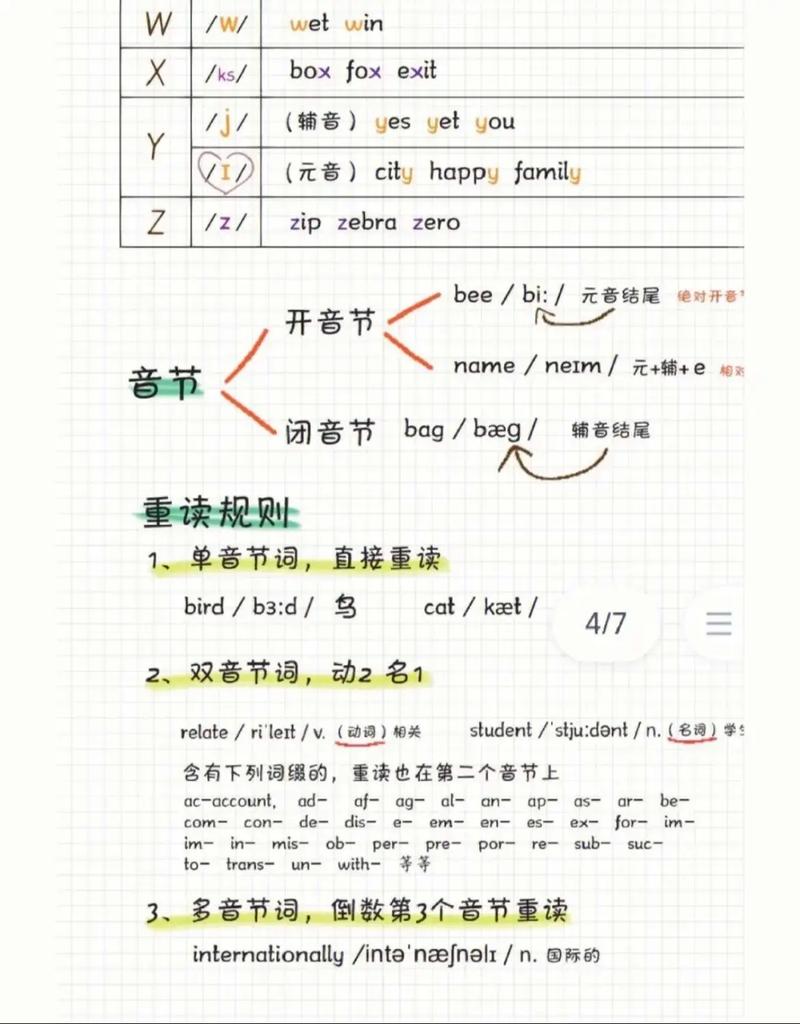 W /w/ wet win
X /ks/ box fox exit
Y /j/ （辅音） yes yet you
/ɪ/ （元音） city happy family
Z /z/ zip zebra zero
bee / bi: / 元音结尾 绝对开音
开音节
name / neɪm / 元+辅+e 相对
音节
闭音节 bag / bæg / 辅音结尾
重读规则
1、单音节词，直接重读
bird / bɜ:d / 鸟 cat / kæt /
4/7
2、双音节词，动2 名1
relate / riˈleɪt / v.（动词）相关 student /ˈstju:dənt / n.（名词）学
含有下列词缀的，重读也在第二个音节上
ac-account, ad- af- ag- al- an- ap- as- ar- be-
com- con- de- dis- e- em- en- es- ex- for- im-
im- in- mis- ob- per- pre- por- re- sub- suc-
to- trans- un- with- 等等
3、多音节词，倒数第3个音节重读
internationally /intəˈnæʃnəlɪ / n. 国际的